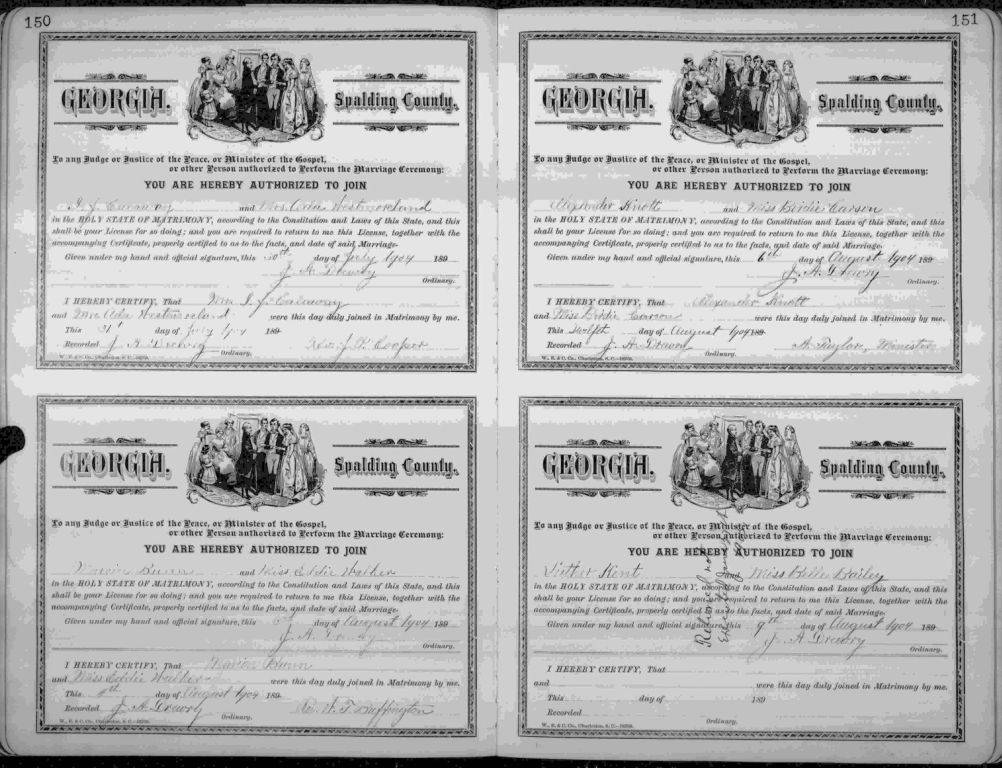 150
GEORGIA. Spalding County,
To any Judge or Justice of the Peace, or Minister of the Gospel,
or other Person authorized to Perform the Marriage Ceremony:
YOU ARE HEREBY AUTHORIZED TO JOIN
and Mrs. Ada Westmoreland
in the HOLY STATE OF MATRIMONY, according to the Constitution and Laws of this State, and this
shall be your License for so doing; and you are required to return to me this License, together with the
accompanying Certificate, properly certified to as to the facts, and date of said Marriage.
Given under my hand and official signature, this 30th day of July 1904 189
J. A. Drewry
Ordinary.
I HEREBY CERTIFY, That
and Mrs Ada Westmoreland were this day duly joined in Matrimony by me.
This 31st day of July 1904 189
Recorded J. A. Drewry Ordinary. Rev. J. W. Cooper
W., E. & C. Co., Charleston, S. C.
GEORGIA. Spalding County,
To any Judge or Justice of the Peace, or Minister of the Gospel,
or other Person authorized to Perform the Marriage Ceremony:
YOU ARE HEREBY AUTHORIZED TO JOIN
and Miss Eddie Walker
in the HOLY STATE OF MATRIMONY, according to the Constitution and Laws of this State, and this
shall be your License for so doing; and you are required to return to me this License, together with the
accompanying Certificate, properly certified to as to the facts, and date of said Marriage.
Given under my hand and official signature, this 6th day of August 1904 189
J. A. Drewry
Ordinary.
I HEREBY CERTIFY, That
and Miss Eddie Walker were this day duly joined in Matrimony by me.
This day of August 1904 189
Recorded J. A. Drewry Ordinary. Rev. W. T. Buffington
W., E. & C. Co., Charleston, S. C.
151
GEORGIA. Spalding County,
To any Judge or Justice of the Peace, or Minister of the Gospel,
or other Person authorized to Perform the Marriage Ceremony:
YOU ARE HEREBY AUTHORIZED TO JOIN
Alexander Knott and Miss Birdie Carson
in the HOLY STATE OF MATRIMONY, according to the Constitution and Laws of this State, and this
shall be your License for so doing; and you are required to return to me this License, together with the
accompanying Certificate, properly certified to as to the facts, and date of said Marriage.
Given under my hand and official signature, this 6th day of August 1904 189
J. A. Drewry
Ordinary.
I HEREBY CERTIFY, That Alexander Knott
and Miss Birdie Carson were this day duly joined in Matrimony by me.
This day of August 1904 189
Recorded J. A. Drewry Ordinary. A. Taylor, Minister
W., E. & C. Co., Charleston, S. C.
GEORGIA. Spalding County,
To any Judge or Justice of the Peace, or Minister of the Gospel,
or other Person authorized to Perform the Marriage Ceremony:
YOU ARE HEREBY AUTHORIZED TO JOIN
Luther Kent and Miss Belle Bailey
in the HOLY STATE OF MATRIMONY, according to the Constitution and Laws of this State, and this
shall be your License for so doing; and you are required to return to me this License, together with the
accompanying Certificate, properly certified to as to the facts, and date of said Marriage.
Given under my hand and official signature, this 9th day of August 1904 189
J. A. Drewry
Ordinary.
Returned not
Executed
I HEREBY CERTIFY, That
and were this day duly joined in Matrimony by me.
This day of 189
Recorded
Ordinary.
W., E. & C. Co., Charleston, S. C.